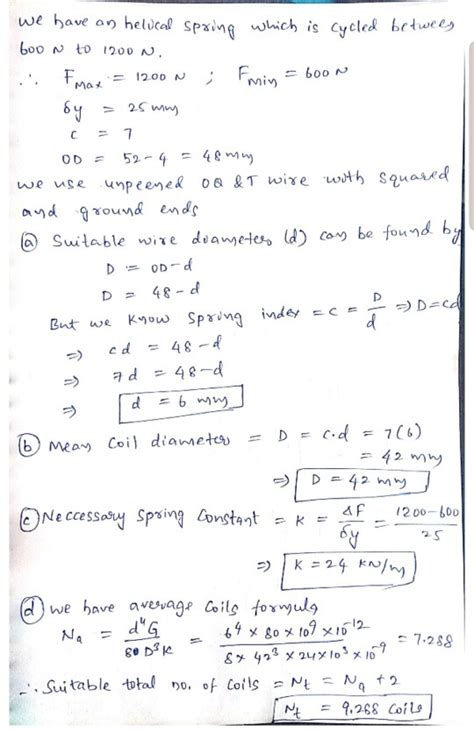 we have an helical spring which is cycled between
600 N to 1200 N.
∴ Fmax = 1200 N ; Fmin = 600 N
δy = 25 mm
c = 7
OD = 52-4 = 48 mm
we use unpeened OQ & T wire with squared
and ground ends
(a) Suitable wire diameter (d) can be found by
D = OD-d
D = 48-d
But we know spring index = c = D/d ⇒ D=cd
⇒ cd = 48-d
⇒ 7d = 48-d
⇒ d = 6 mm
(b) Mean coil diameter = D = c.d = 7(6)
= 42 mm
⇒ D = 42 mm
(c) Neccessary spring constant = K = ΔF/δy = 1200-600/25
⇒ K = 24 KN/m
(d) we have average coils formula
Na = d⁴G/80 D³K = 6⁴ × 80 × 10⁹ × 10⁻¹²/8 × 42³ × 24×10³ × 10⁻⁹ = 7.288
∴ Suitable total no. of coils = Nt = Na + 2
Nt = 9.288 Coils